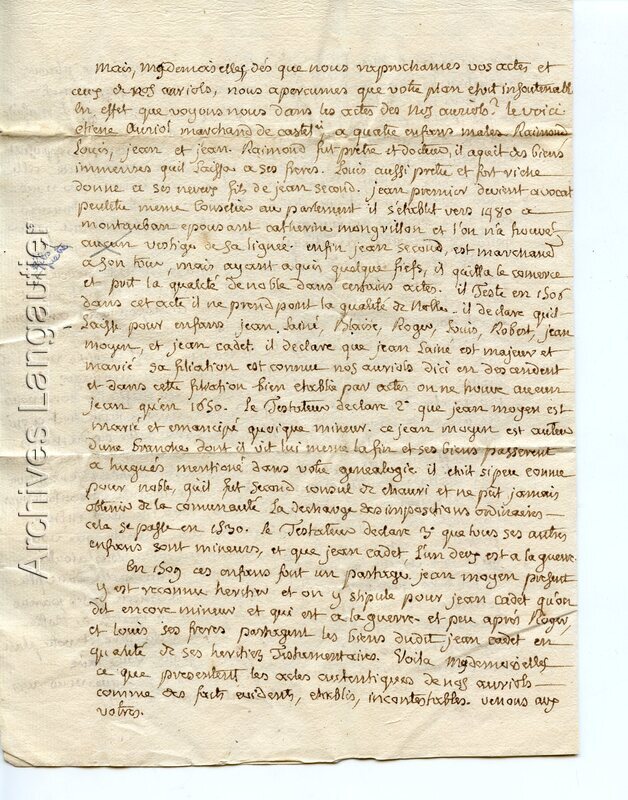 mais, mesdemoiselles, dès que nous raprochames vos actes et
ceux de nos auriols, nous aperçumes que votre plan etoit insoutenable
En effet que voyons nous dans les actes des Nos auriols? le voici:
etiene Auriol marchand de castel.ry a quatre enfans males Raimond
Louis, jean et jean. Raimond fut prêtre et docteur, il aqueit des biens
immenses quil Laissa a ses freres. Louis aussi pretre et fort riche
donne a ses neveux fils de jean second. jean premier devient avocat
peutetre meme Conselier au parlement il s'etablit vers 1480 a
montauban epousant catherine mongvillon et l'on n'a trouvé
aucun vestige de sa lignée. enfin jean second, est marchand
a son tour, mais ayant aquis quelque fiefs, il quitta le comerce
et prit la qualité de noble dans certains actes. il Teste en 1506
dans cet acte il ne prend point la qualité de Noble. il declare quil
Laisse pour enfans jean Lainé, Blaise, Roger, Louis, Robert, jean
moyen, et jean cadet. il declare que jean Lainé est majeur et
marié sa filiation est connue nos auriols dici en descendent
et dans cette filiation bien etablie par actes on ne trouve aucun
jean qu'en 1650. Le Testateur declare 2° que jean moyen est
marié et emancipé quoique mineur. ce jean moyen est auteur
dune branche dont il vit lui meme la fin et ses biens passerent
a hugues mentioné dans votre genealogie. il etoit si peu conne
pour noble, qu'il fut second consul de chauri et ne put jamais
obtenir de la comunauté La decharge des impositions ordinaires
cela se passe en 1530. Le Testateur declare 3° que tous ses autres
enfans sont mineurs, et que jean cadet, L'un deux est a la guerre.
En 1509 ces enfans font un partage jean moyen present
y est reconnu heritier et on y stipule pour jean cadet qu'on
dit encore mineur et qui est a la guerre. et peu après Roger,
et Louis ses freres partagent les biens dudit jean cadet en
qualité de ses heritiers Testamentaires. Voila mesdemoiselles
ce que presentent les actes autentiques de nos auriols
comme des faits evidents, etablis, incontestables. venons aux
votres.
Archives Langautier